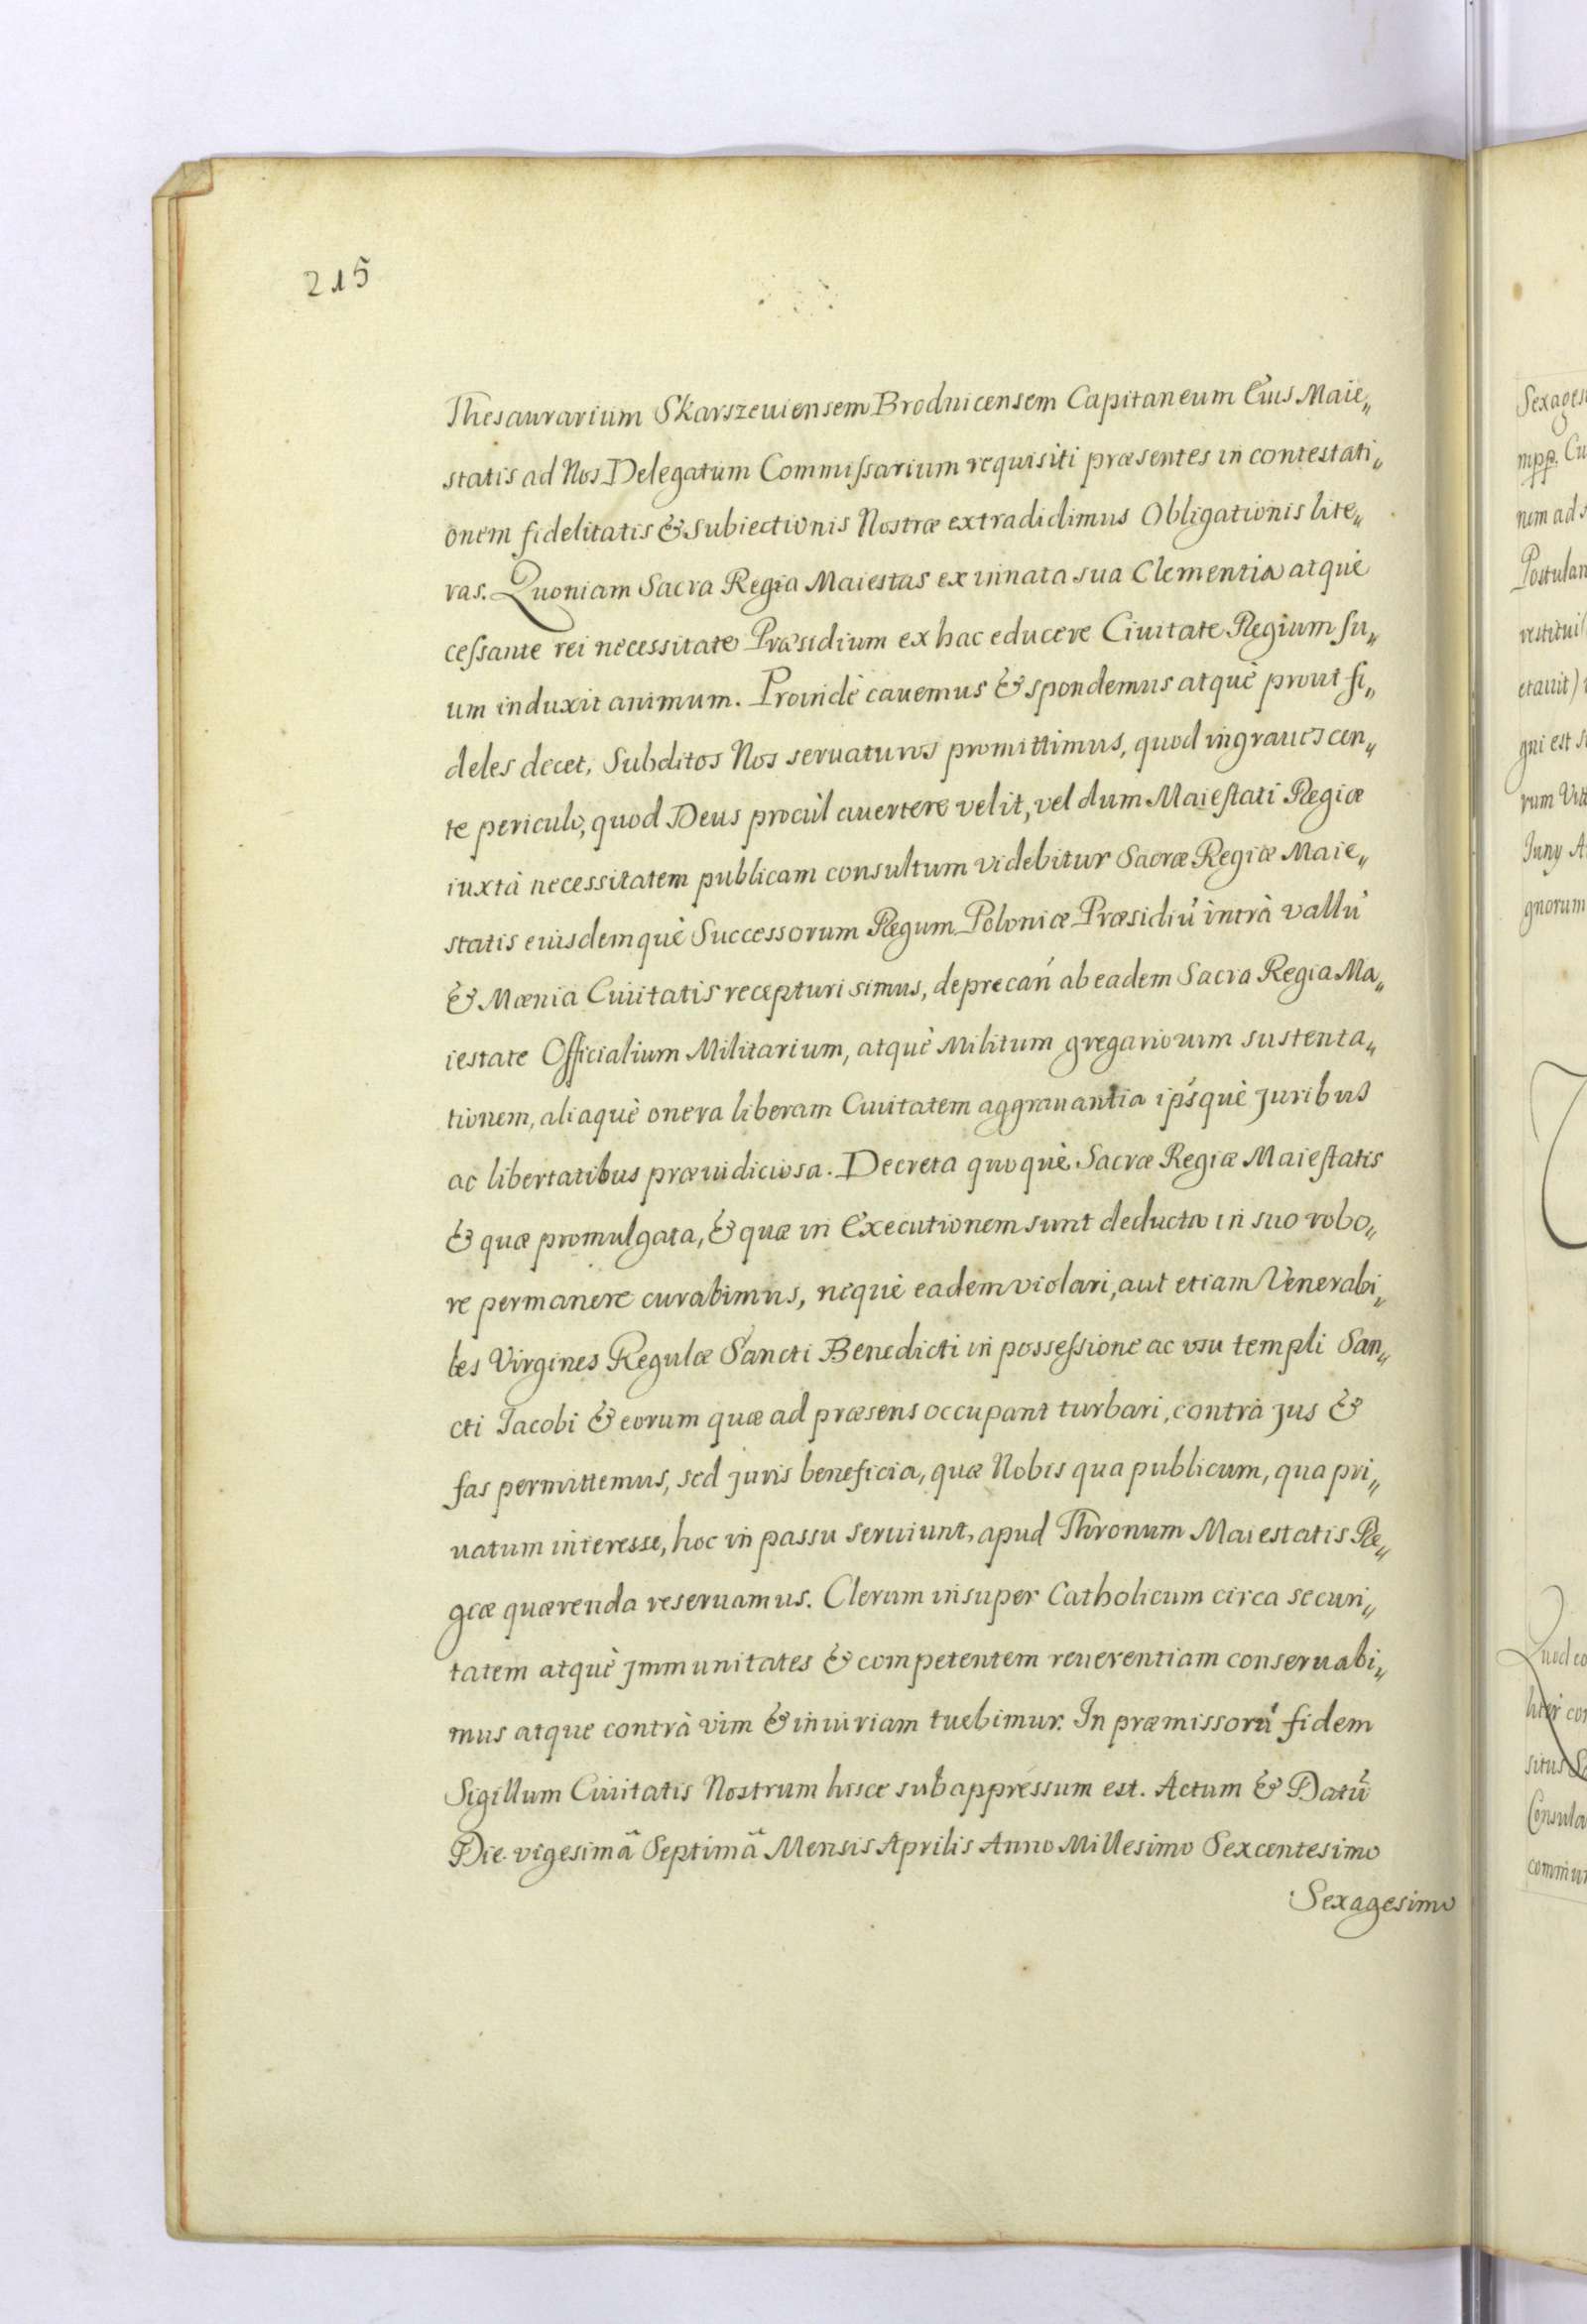 215
Thesaurarium Skarszeuiensem Brodnicensem Capitaneum Eius Maie„
statis ad Nos Delegatum Commissarium requisiti præsentes in contestati„
onem fidelitatis & subiectionis Nostræ extradidimus Obligationis lite„
ras. Quoniam Sacra Regia Maiestas ex innata sua Clementia atquè
cessante rei necessitate Præsidium ex hac educere Ciuitate Regium su„
um induxit animum. Proindè cauemus & spondemus atquè prout fi„
deles decet, Subditos Nos seruaturos promittimus, quod ingrauescen„
te periculo, quod Deus procùl auertere velit, vel dum Maiestati Regiæ
iuxtà necessitatem publicam consultum videbitur Sacræ Regiæ Maie„
statis eiusdemquè Successorum Regum Poloniæ Præsidiū intrà vallū
& Mœnia Ciuitatis recepturi simus, deprecań ab eadem Sacra Regia Ma„
iestate Officialium Militarium, atquè Militum gregariorum sustenta„
tionem, aliaquè onera liberam Ciuitatem aggrauantia ipśquè juribus
ac libertatibus præiudiciosa. Decreta quoquè Sacræ Regiæ Maiestatis
& quæ promulgata, & quæ in Executionem sunt deducta in suo robo„
re permanere curabimus, nequè eadem violari, aut etiam Venerabi„
les Virgines Regulæ Sancti Benedicti in possessione ac usu templi San„
cti Jacobi & eorum quæ ad præsens occupant turbari, contrà jus &
fas permittemus, sed juris beneficia, quæ Nobis qua publicum, qua pri„
uatum interesse, hoc in passu seruiunt, apud Thronum Maiestatis Re„
giæ quærenda reseruamus. Clerum insuper Catholicum circa securi„
tatem atquè jmmunitates & competentem reuerentiam conseruabi„
mus atque contrà vim & iniuriam tuebimur. In præmissorū fidem
Sigillum Ciuitatis Nostrum hisce subappressum est. Actum & Datū
Die vigesimâ Septimâ Mensis Aprilis Anno Millesimo Sexcentesimo
Sexagesimo